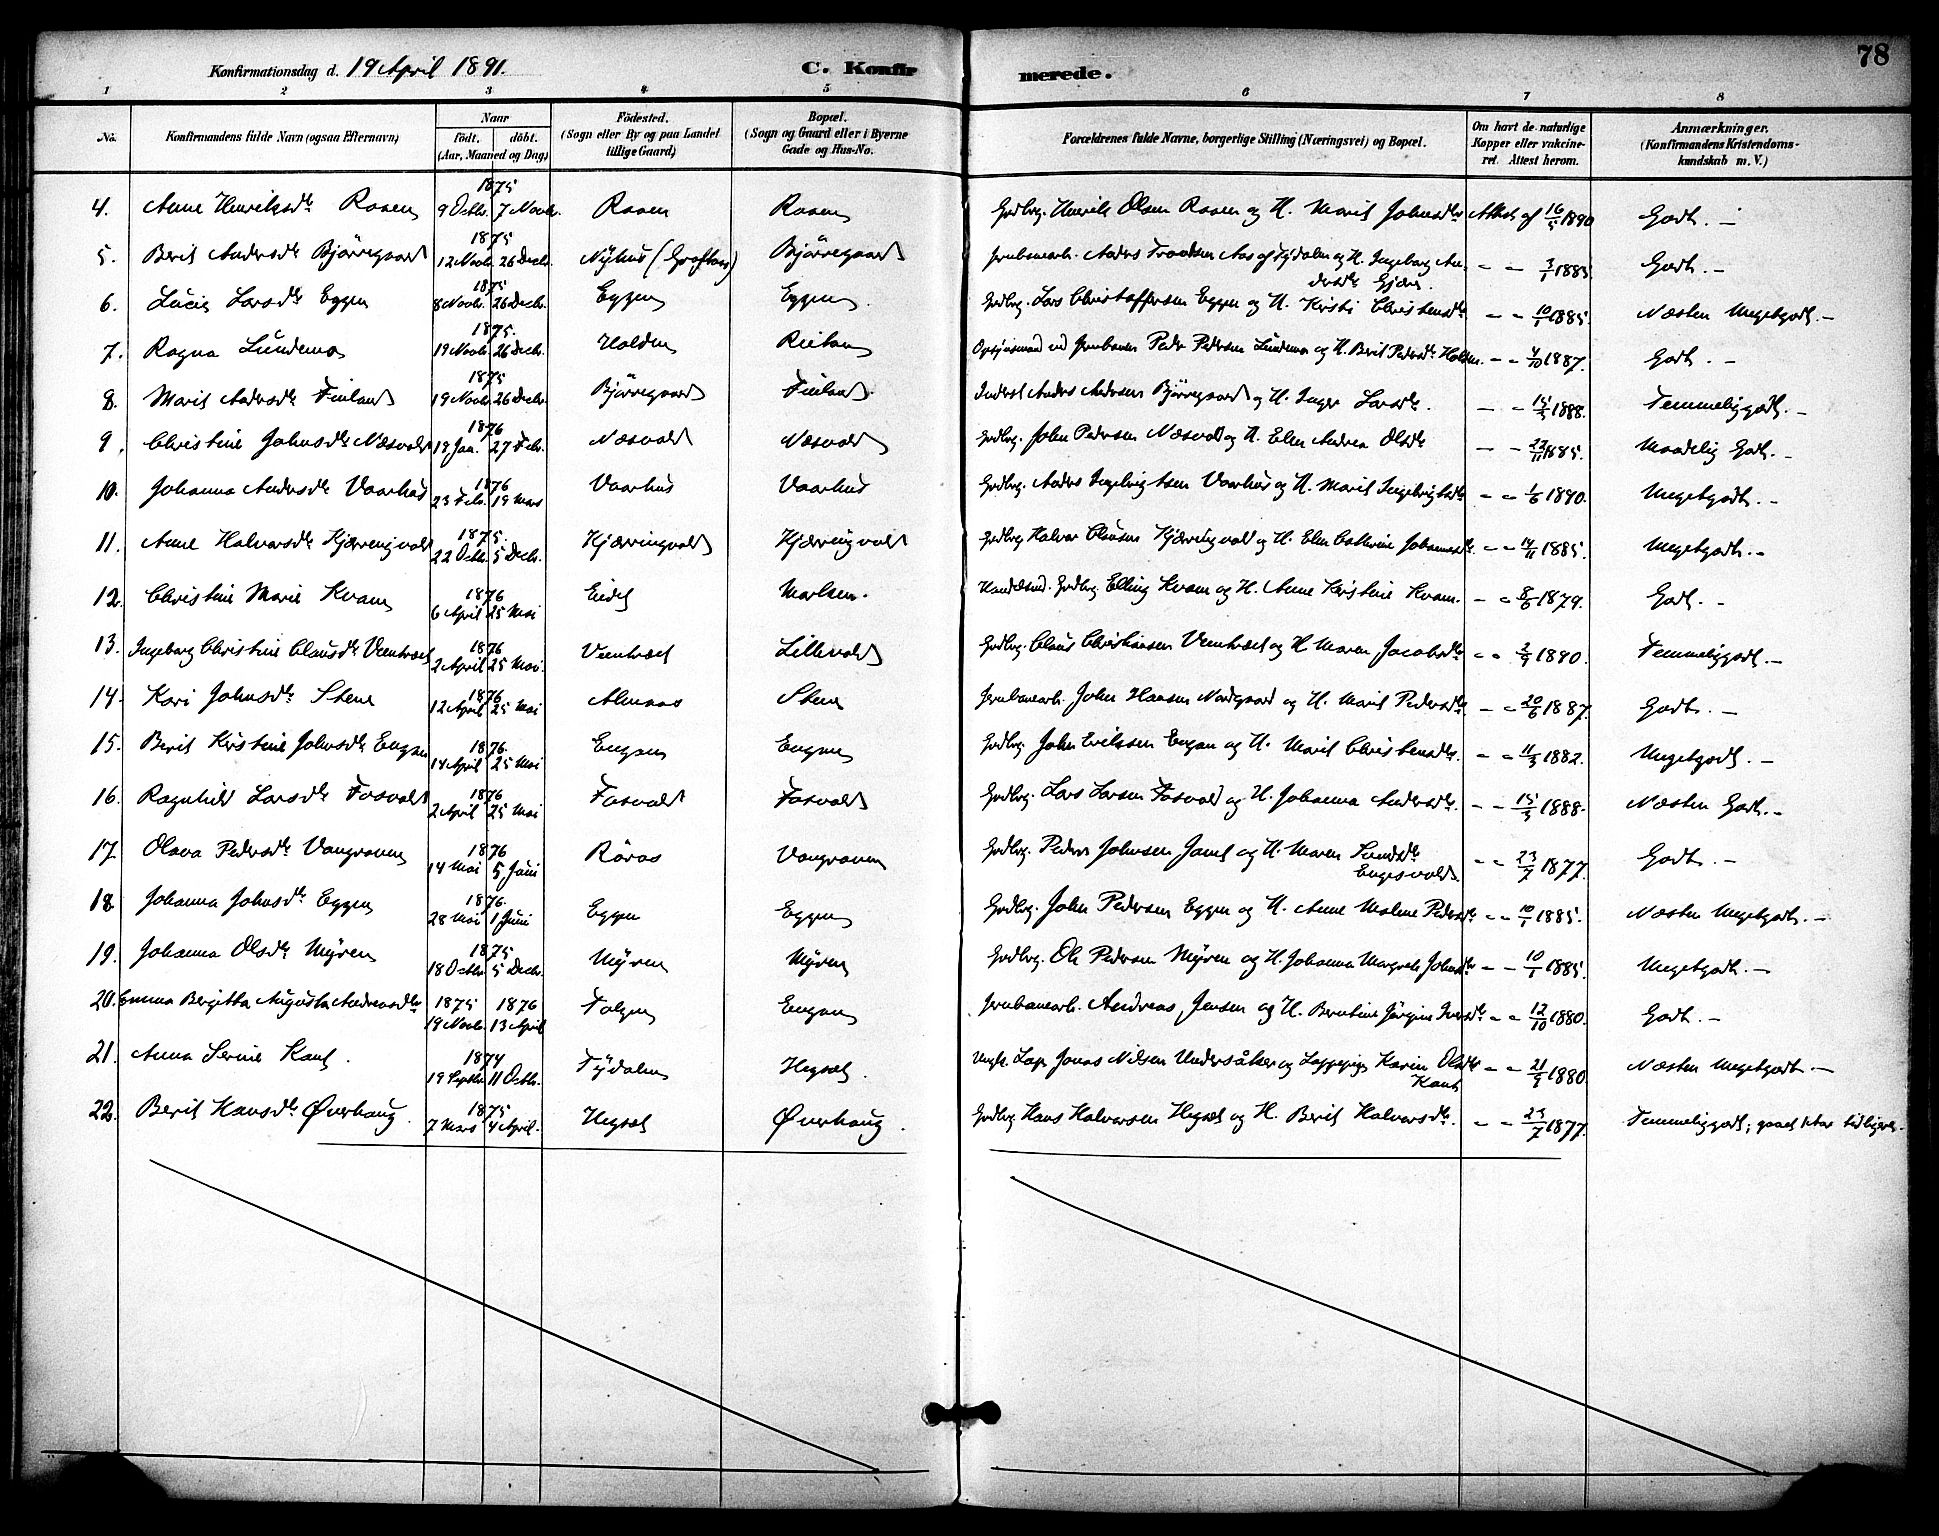 78
Konfirmationsdag d. 19 April 1891. C. Konfirmerede.
1 2 3 4 5 6 7 8
No. Konfirmandens fulde Navn (ogsaa Efternavn) Naar födt. döbt. (Aar, Maaned og Dag) Födested. (Sogn eller By og paa Landet tillige Gaard) Bopæl. (Sogn og Gaard eller i Byerne Gade og Hus-No. Forældrenes fulde Navne, borgerlige Stilling (Næringsvei) og Bopæl. Om havt de naturlige Kopper eller vakcineret. Attest herom. Anmærkninger. (Konfirmandens Kristendomskundskab m. V.)
4. Anne Henriksdtr Roaen 1875 9 Octbr. 7 Novbr. Roaen Roaen Grdbrg. Henrik Olsen Roaen og H. Marit Johnsdtr Attest af 16/5 1890 Godt. –
5. Berit Andersdtr Bjørregaard 1875 12 Novbr. 26 Decbr. Nÿhus Bjørregaard Jernbanearb. Anders Aas af Tydalen og H. Ingeborg Andersdtr – – 3/1 1885 Godt. –
6. Lucie Larsdtr Eggen 1875 8 Novbr. 26 Decbr. Eggen Eggen. Grdbrg. Lars Christoffersen Eggen og H. Kirsti Christensdtr – – 10/1 1885. Næsten Megetgodt. –
7. Ragna Lundemo 1875. 19 Novbr. 26 Decbr. Holden Reitan Opsynsmand ved Jernbanen Peder Pedersen Lundemo og H. Berit Pedersdtr Holden – – 4/10 1887. Godt. –
8. Marit Andersdtr Finland 1875 19 Novbr. 26 Decbr. Bjørregaard Finland. Inderst Anders Andersen Bjørregaard og H. Inger Larsdtr. – – 15/3 1888. Temmeliggodt. –
9. Christine Johnsdtr Næsvold 1876 19 Jan. 27 Febr. Næsvold Næsvold Grdbrg. John Pedersen Næsvold og H. Elen Andrea Olsdtr – – 22/11 1885. Maadelig Godt. –
10. Johanna Andersdtr Vaarhus 1876 23 Febr. 19 Mars Vaarhus Vaarhus Grdbrg. Anders Ingebrigtsen Vaarhus og H. Marit Ingebrigtsdtr – – 1/6 1890. Megetgodt. –
11. Anne Halvorsdtr Kjærringvold 1875. 22 Octbr. 5 Decbr. Kjærringvold Kjærringvold Grdbrg Halvor Clausen Kjærringvold og H. Elen Cathrine Johannesdtr – – 14/11 1885. Megetgodt. –
12. Christine Marie Kvam 1876 6 April 25 Mai Eidet Morlsen. Handelsmd. Grdbrg. Elling Kvam og H. Anne Kristine Kvam. – – 8/6 1879. Godt. –
13. Ingeborg Christine Clausdtr Veentræet 1876 2 April 25 Mai Veentræet Lillevold Grdbrg. Claus Christiansen Veentræet og H Maren Jacobsdtr – – 2/9 1890. Temmeliggodt. –
14. Kari Johnsdtr Stene 1876 12 April 25 Mai Almaas Stene Jernbanearb. John Hansen Nordgaard og H. Marit Pedersdtr – – 20/6 1887. Godt. –
15. Berit Kirstine Johnsdtr Engan 1876. 14 April 25 Mai Engan Engan Grdbrg. John Eriksen Engan og H. Marit Christensdtr. – – 11/3 1882. Megetgodt. –
16. Ragnhild Larsdtr Fosvold 1876 2 April 25 Mai Fosvold Fosvold Grdbrg. Lars Larsen Fosvold og H. Johanna Andersdtr. – – 15/3 1888. Næsten Godt. –
17. Olava Pedersdtr Vongraven 1876 14 Mai 5 Juni Röros Vongraven Grdbrg. Peder Johnsen og H. Maren Engesvold – – 23/7 1877. Godt. –
18. Johanna Johnsdtr Eggen 1876. 28 Mai 1 Juni Eggen Eggen Grdbrg. John Pedersen Eggen og H. Anne Malene Pedersdtr – – 10/1 1885. Næsten Megetgodt. –
19. Johanna Olsdtr Mÿren 1875 18 Octbr. 5 Decbr. Mÿren Mÿren Grdbrg. Ole Pedersen Mÿren og H. Johanna Margrete Johnsdtr – – 10/1 1885. Megetgodt. –
20. Emma Bergitta Augusta Andreasdtr 1875 1876 19 Novbr. 13 April Folgen Engan Jernbanearb. Andreas Jensen og H. Berntine Jörgine Iversdtr – – 12/10 1880. Godt. –
21. Anna Serine Kant. 1874 19 Septbr. 11 Octbr. Tÿdalen Hegset. Ungk. Lap Jonas Nilsen Undersåker og Lappepige Karin Olsdtr Kant – – 21/9 1880. Næsten Megetgodt –
22. Berit Hansdtr Øverhaug. 1875 7 Mars 4 April. Hegset Øverhaug. Grdbrg. Hans Halvorsen Hegset og H. Berit Halvorsdtr. – – 23/7 1877. Temmeliggodt; gaaet tidligere.